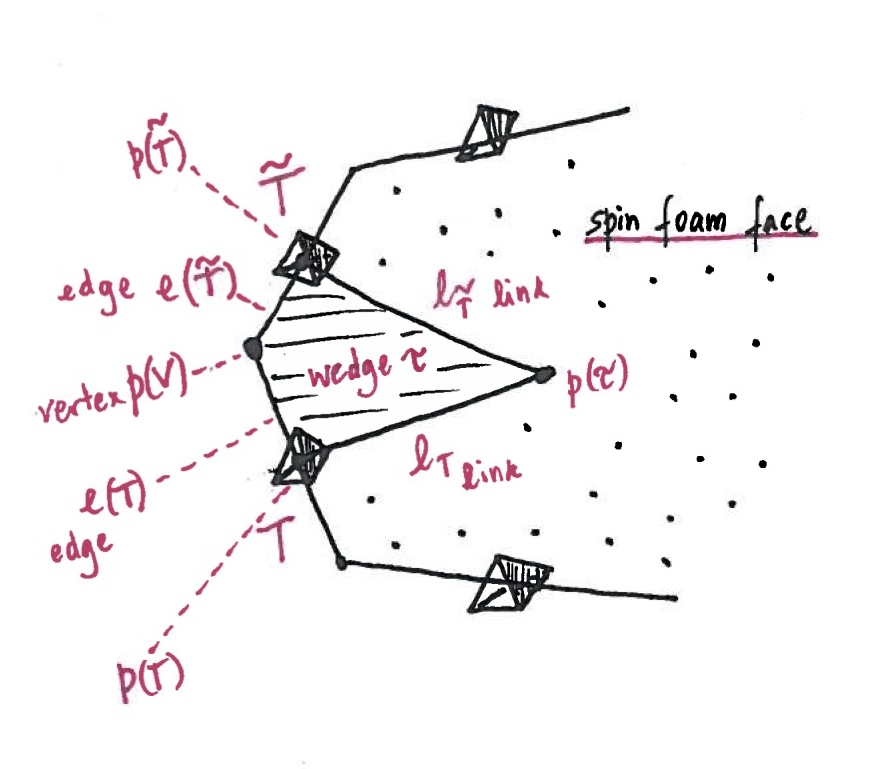 p(T̃)
T̃
spin foam face
edge e(T̃)
l_T̃ link
vertex p(V)
wedge τ
p(τ)
l_T link
e(T)
edge
T
p(T)